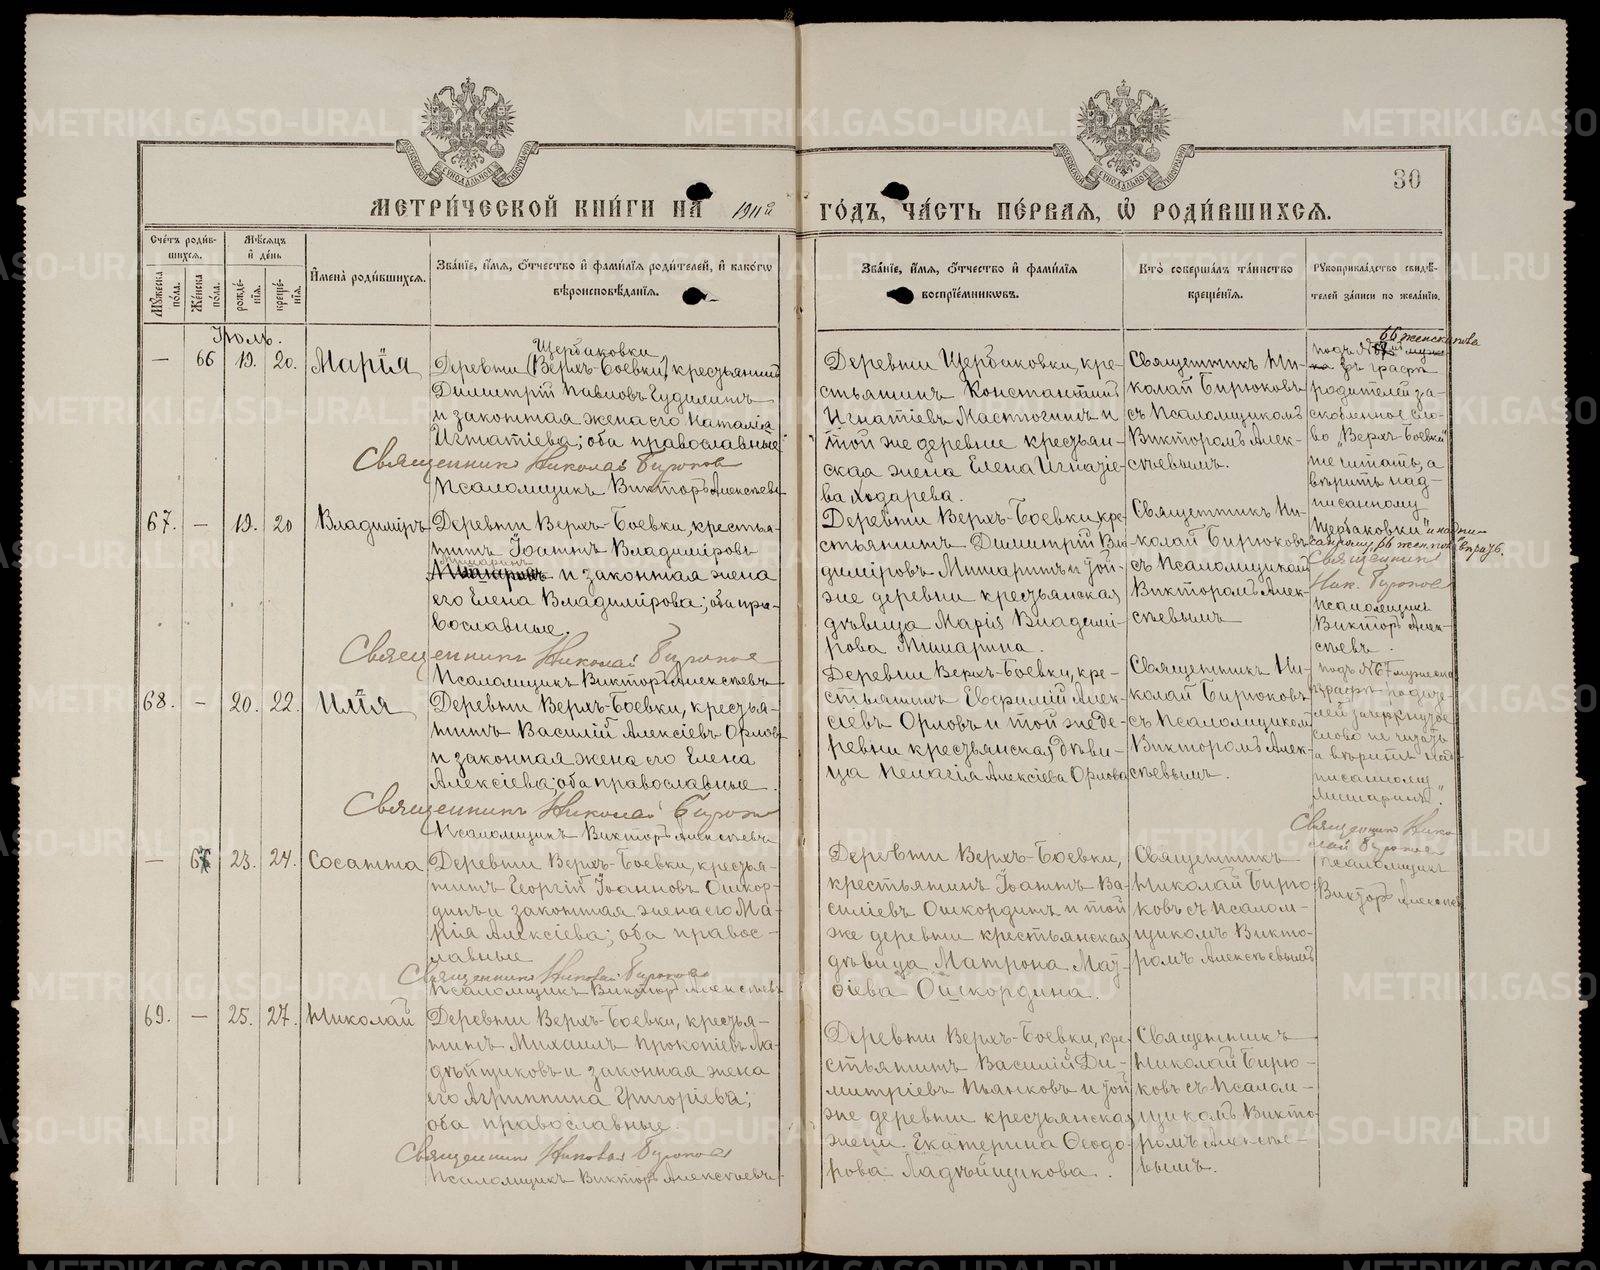 МЕТРИЧЕСКОЙ КНИГИ НА 1911й ГОДЪ, ЧАСТЬ ПЕРВАЯ, Ѡ РОДИВШИХСЯ.
30
Счетъ родившихся.
Мужеска пола.
Женска пола.
Мѣсяцъ и день
рожденія.
крещенія.
Имена родившихся.
Званіе, имя, отчество и фамилія родителей, и какогѡ вѣроисповѣданія.
Званіе, имя, отчество и фамилія воспріемниковъ.
Кто совершалъ таинство крещенія.
Рукоприкладство свидѣтелей записи по желанію.
Іюль.
— 66 19. 20. Марія
Щербаковки
Деревни (Верхъ-Боевки) крестьянинъ
Димитрій Павловъ
и законная жена его Наталія
Игнатіева; оба православные
Священникъ Николай Бирюковъ
Псаломщикъ Викторъ Алексѣевъ
Деревни Щербаковки, кре-
стьянинъ Константинъ
Игнатіевъ и
той же деревни крестьян-
ская жена Елена Игнатіе-
ва Ходарева.
Священникъ Ни-
колай Бирюковъ
съ Псаломщикомъ
Викторомъ Алек-
сѣевымъ.
66 женск. пола
подъ №
въ графѣ
родителей за-
скобленное сло-
во „Верхъ-Боевки"
не читать, а
вѣрить над-
писанному
„Щербаковки"
Священникъ
Ник. Бирюковъ
Псаломщикъ
Викторъ Алек-
сѣевъ.
67. — 19. 20 Владиміръ
Деревни Верхъ-Боевки, крестья-
нинъ Іоаннъ Владиміровъ
Мишаринъ
и законная жена
его Елена Владимірова; оба пра-
вославные.
Священникъ Николай Бирюковъ
Псаломщикъ Викторъ Алексѣевъ
Деревни Верхъ-Боевки, кре-
стьянинъ Димитрій Вла-
диміровъ Мишаринъ и той-
же деревни крестьянская
дѣвица Марія Владимі-
рова Мишарина.
Священникъ Ни-
колай Бирюковъ
съ Псаломщикомъ
Викторомъ Алек-
сѣевымъ
подъ № 67 мужеска
въ графѣ родите-
лей зачеркнутое
слово не читать
а вѣрить над-
писанному
„Мишаринъ".
Священникъ Нико-
лай Бирюковъ
Псаломщикъ
Викторъ Алексѣевъ
68. — 20. 22. Илія
Деревни Верхъ-Боевки, крестья-
нинъ Василій Алексіевъ Орловъ
и законная жена его Елена
Алексіева; оба православные.
Священникъ Николай Бирюковъ
Псаломщикъ Викторъ Алексѣевъ
Деревни Верхъ-Боевки, кре-
стьянинъ Евфимій Алек-
сіевъ Орловъ и той же де-
ревни крестьянская дѣви-
ца Пелагія Алексіева Орлова
Священникъ Ни-
колай Бирюковъ
съ Псаломщикомъ
Викторомъ Алек-
сѣевымъ.
— 67 23. 24. Сосанна
Деревни Верхъ-Боевки, крестья-
нинъ Георгій Іоанновъ Ошкор-
динъ и законная жена его Ма-
рія Алексіева; оба правос-
лавные
Священникъ Николай Бирюковъ
Псаломщикъ Викторъ Алексѣевъ
Деревни Верхъ-Боевки,
крестьянинъ Іоаннъ Ва-
силіевъ Ошкординъ и той
же деревни крестьянская
дѣвица Матрона Мат-
ѳіева Ошкордина.
Священникъ
Николай Бирю-
ковъ съ Псалом-
щикомъ Викто-
ромъ Алексѣевымъ
69. — 25. 27. Николай
Деревни Верхъ-Боевки, крестья-
нинъ Михаилъ Прокопіевъ Ла-
дѣйщиковъ и законная жена
его Агриппина Григоріева;
оба православные.
Священникъ Николай Бирюковъ
Псаломщикъ Викторъ Алексѣевъ
Деревни Верхъ-Боевки, кре-
стьянинъ Василій Ди-
митріевъ Пьянковъ и той
же деревни крестьянская
жена Екатерина Ѳеодо-
рова Ладѣйщикова.
Священникъ
Николай Бирю-
ковъ съ Псалом-
щикомъ Викто-
ромъ Алексѣе-
вымъ.
METRIKI.GASO-URAL.RU